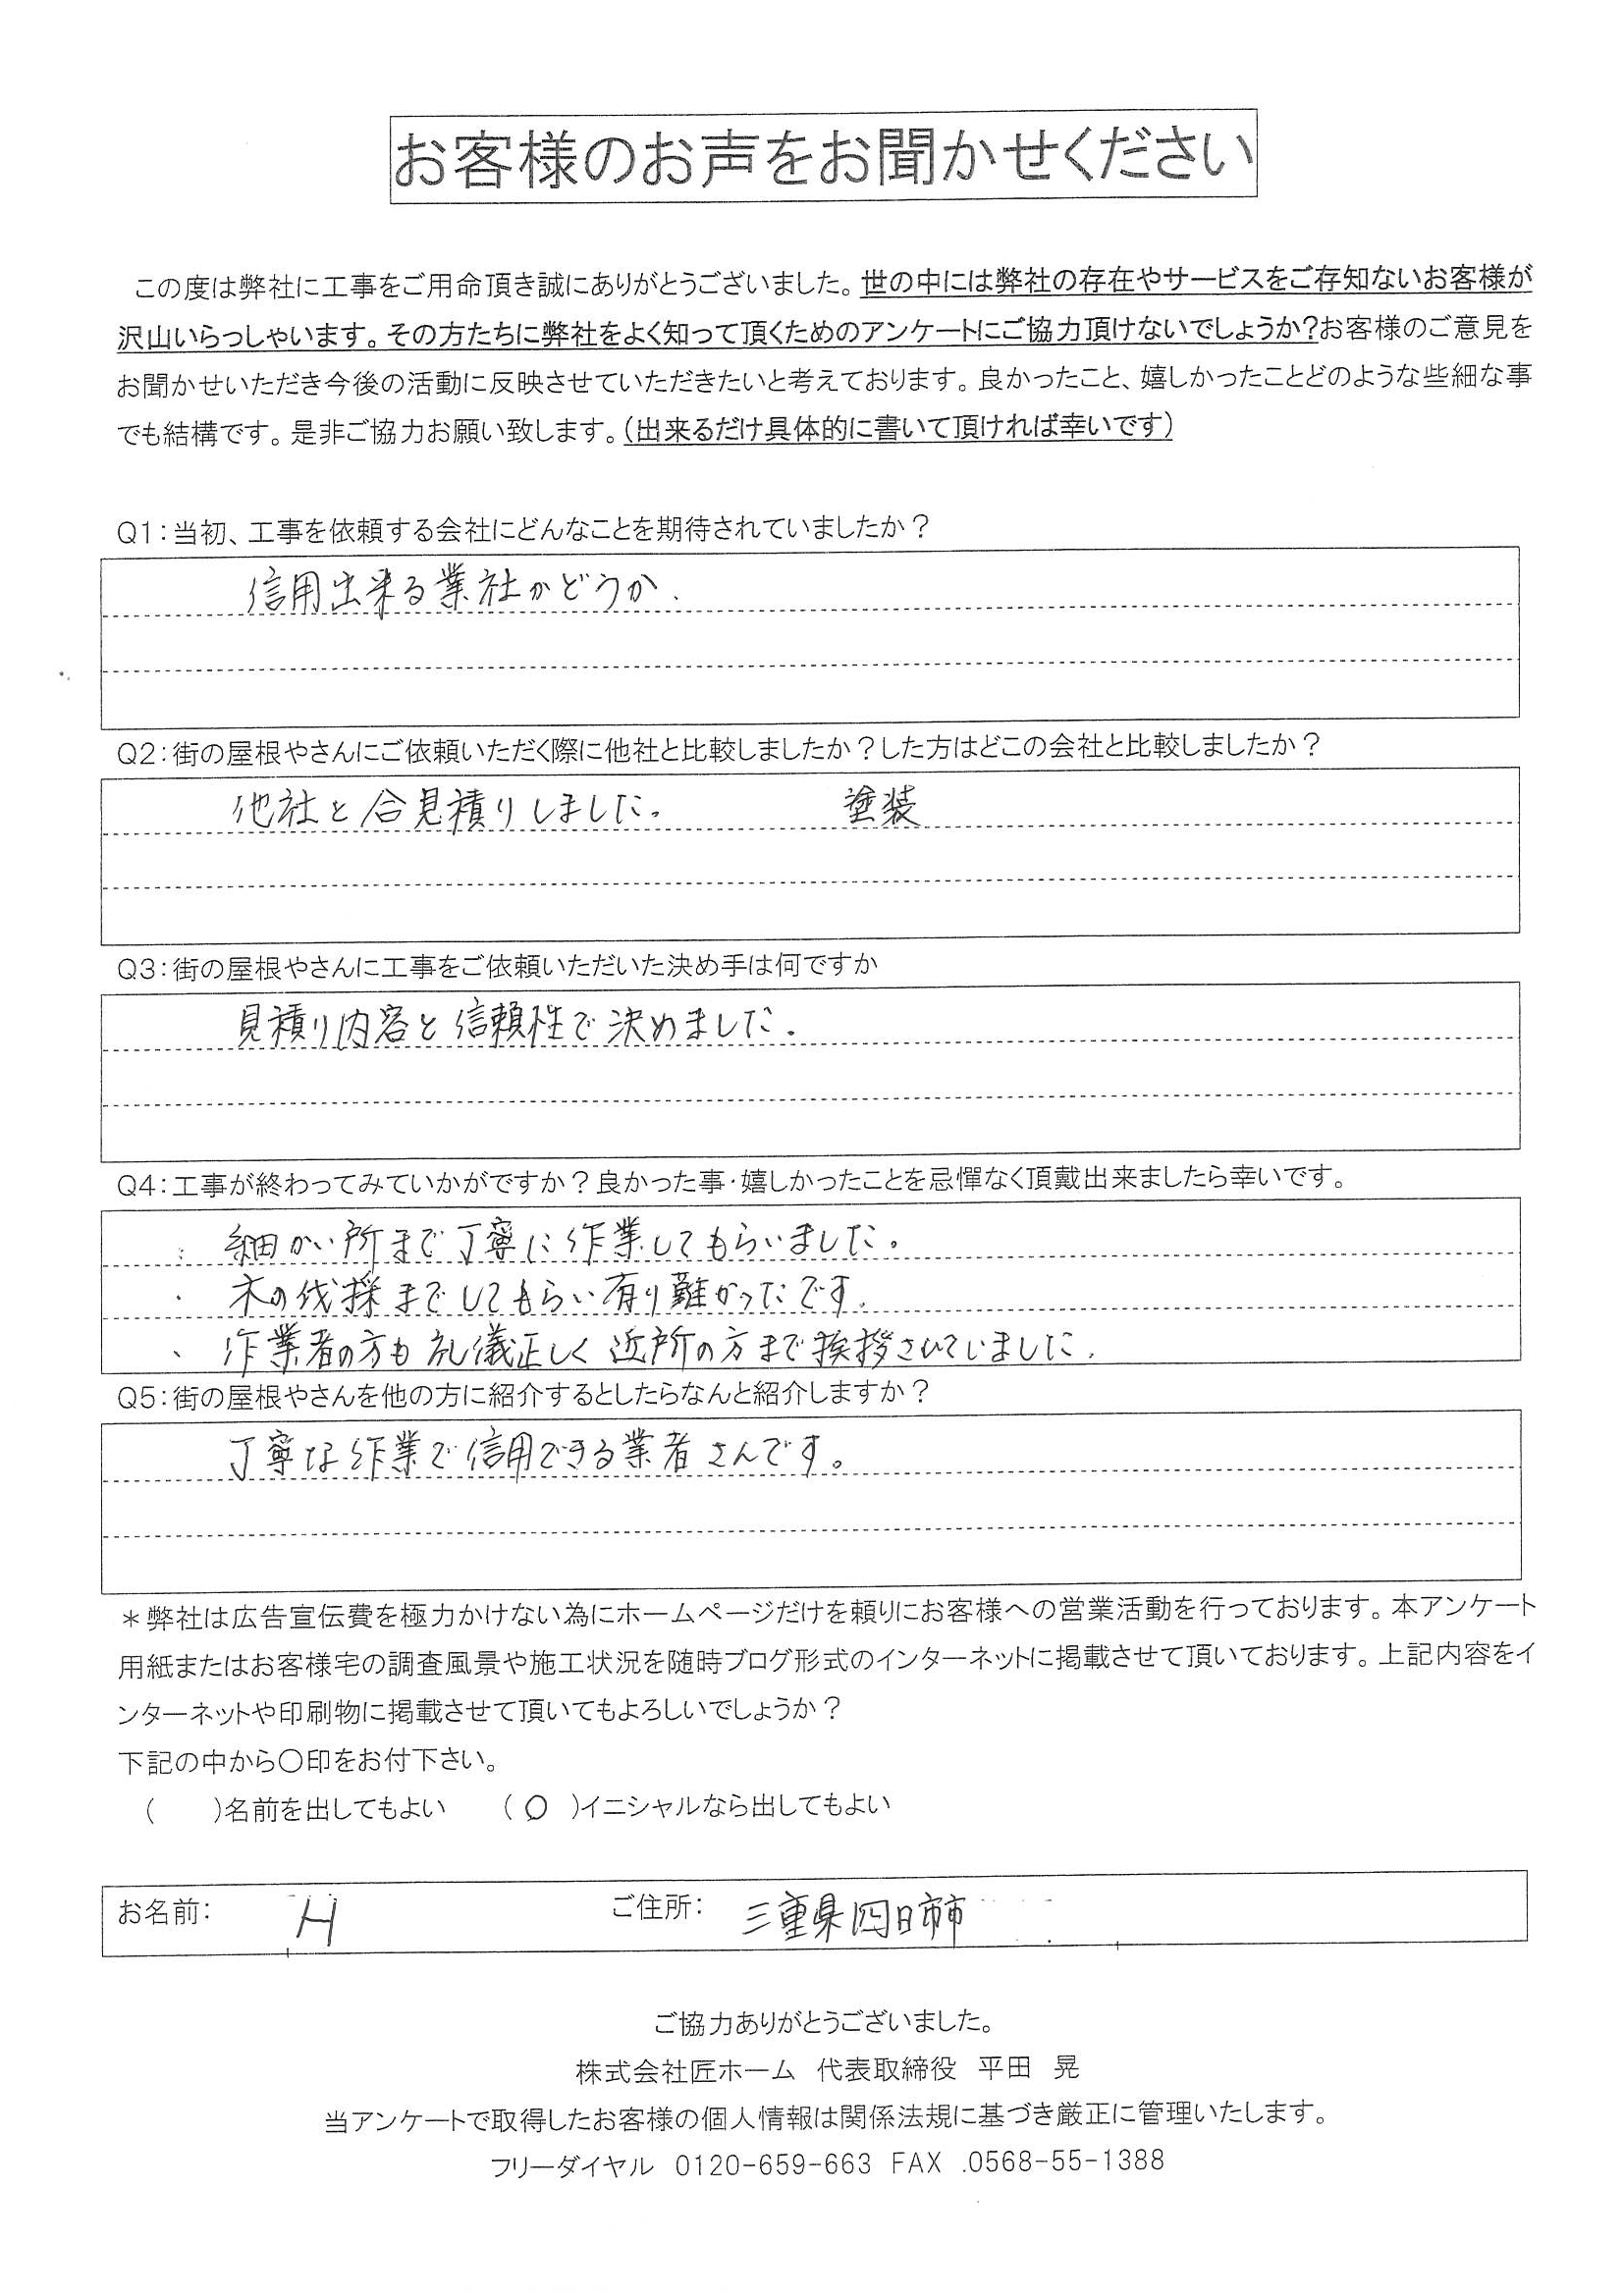 お客様のお声をお聞かせください
この度は弊社に工事をご用命頂き誠にありがとうございました。世の中には弊社の存在やサービスをご存知ないお客様が
沢山いらっしゃいます。その方たちに弊社をよく知って頂くためのアンケートにご協力頂けないでしょうか?お客様のご意見を
お聞かせいただき今後の活動に反映させていただきたいと考えております。良かったこと、嬉しかったことどのような些細な事
でも結構です。是非ご協力お願い致します。(出来るだけ具体的に書いて頂ければ幸いです)
Q1:当初、工事を依頼する会社にどんなことを期待されていましたか?
信用出来る業社かどうか.
Q2:街の屋根やさんにご依頼いただく際に他社と比較しましたか?した方はどこの会社と比較しましたか?
他社と合見積りしました。 塗装
Q3:街の屋根やさんに工事をご依頼いただいた決め手は何ですか
見積り内容と信頼性で決めました.
Q4:工事が終わってみていかがですか?良かった事・嬉しかったことを忌憚なく頂戴出来ましたら幸いです。
・細かい所まで丁寧に作業してもらいました。
・木の伐採までしてもらい有り難かったです.
・作業者の方も礼儀正しく近所の方まで挨拶されていました.
Q5:街の屋根やさんを他の方に紹介するとしたらなんと紹介しますか?
丁寧な作業で信用できる業者さんです。
*弊社は広告宣伝費を極力かけない為にホームページだけを頼りにお客様への営業活動を行っております。本アンケート
用紙またはお客様宅の調査風景や施工状況を随時ブログ形式のインターネットに掲載させて頂いております。上記内容をイ
ンターネットや印刷物に掲載させて頂いてもよろしいでしょうか?
下記の中から〇印をお付下さい。
( )名前を出してもよい (〇)イニシャルなら出してもよい
お名前: H ご住所: 三重県四日市市
ご協力ありがとうございました。
株式会社匠ホーム 代表取締役 平田 晃
当アンケートで取得したお客様の個人情報は関係法規に基づき厳正に管理いたします。
フリーダイヤル 0120-659-663 FAX .0568-55-1388